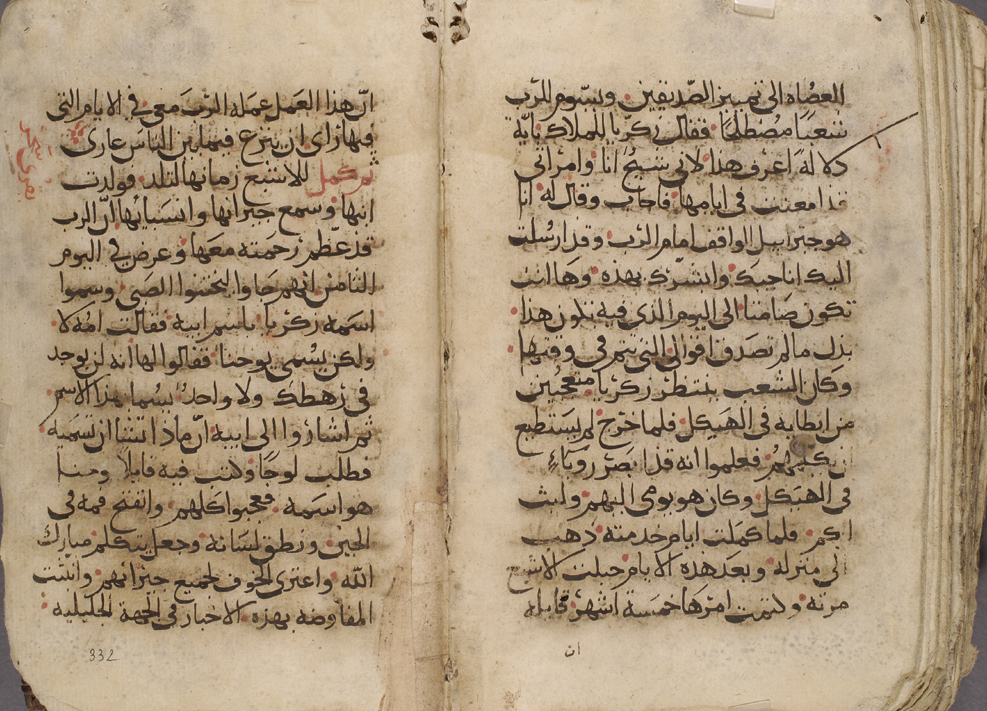 العصاه الى تمييز الصديقين ويسوم للرب
شعبًا مصطلحًا فقال زكريا للملاك باية
دلاله اعرف هذا لاني شيخ انا وامراتي
قد امعنت في ايامها فاجاب وقال له انا
هو جبراييل الواقف امام الرب وقد ارسلت
اليك اناجيك وابشرك بهذه وها انت
تكون صامتا الى اليوم الذي فيه تكون هذا
بدل مالم تصدق اقوالي التي تتم في وقتها
وكان الشعب ينتظر زكريا متعجبين
من ابطايه في الهيكل فلما خرج لم يستطيع
ان يكلمهم فعلموا انه قد ابصر روياء
في الهيكل وكان هو يومي اليهم ولبث
ابكم فلما كملت ايام خدمته ذهب
الى منزله وبعد هذه الايام حبلت الاشبع
مرته وكتمت امرها خمسة اشهر قايله
ان
ان هذا العمل عمله الرب معي في الايام التي
فيها راى ان ينزع فيما بين الناس عاري
ثم كمل للاشبع زمانها لتلد فولدت
ابنها وسمع جيرانها وانسبايها ان الرب
قد عظم رحمته معها وعرض في اليوم
الثامن انهم جاوا ليختنوا الصبي وسموا
اسمه زكريا باسم ابيه فقالت امه لا
ولكن يسمى يوحنا فقالوا لها انه لن يوجد
في رهطك ولا واحد يسما بهذا الاسم
ثم اشاروا الى ابيه ان ماذا تشا ان تسميه
فطلب لوحًا وكتب فيه قايلا يوحنا
هو اسمه فعجبوا كلهم وانفتح فمه في
الحين ونطق لسانه وجعل يتكلم مبارك
الله واعترى الخوف لجميع جيرانهم وانبثت
المفاوضه بهذه الاخبار في الجهة الجليليه
332